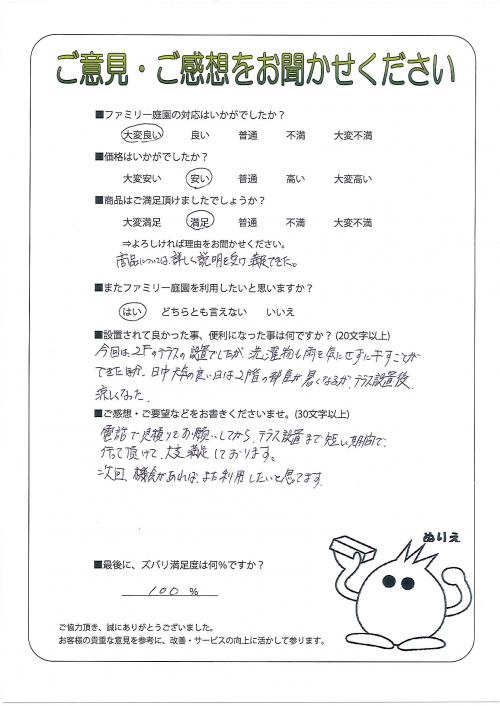 ご意見・ご感想をお聞かせください
■ファミリー庭園の対応はいかがでしたか？
大変良い 良い 普通 不満 大変不満
■価格はいかがでしたか？
大変安い 安い 普通 高い 大変高い
■商品はご満足頂けましたでしょうか？
大変満足 満足 普通 不満 大変不満
⇒よろしければ理由をお聞かせください。
商品については、詳しく説明を受け、満足できた。
■またファミリー庭園を利用したいと思いますか？
はい どちらとも言えない いいえ
■設置されて良かった事、便利になった事は何ですか？(20文字以上)
今回は、2Fのテラスの設置でしたが 洗濯物も雨を気にせずに干すことが
できたほか、日中天気の良い日は2階の部屋が暑くなるが、テラス設置後
涼しくなった
■ご感想・ご要望などをお書きくださいませ。(30文字以上)
電話で見積りをお願いしてから、テラス設置まで短い期間で、
行って頂けて、大変満足しております。
次回、機会があれば、また利用したいと思てます
ぬりえ
■最後に、ズバリ満足度は何％ですか？
100 %
ご協力頂き、誠にありがとうございました。
お客様の貴重な意見を参考に、改善・サービスの向上に活かして参ります。